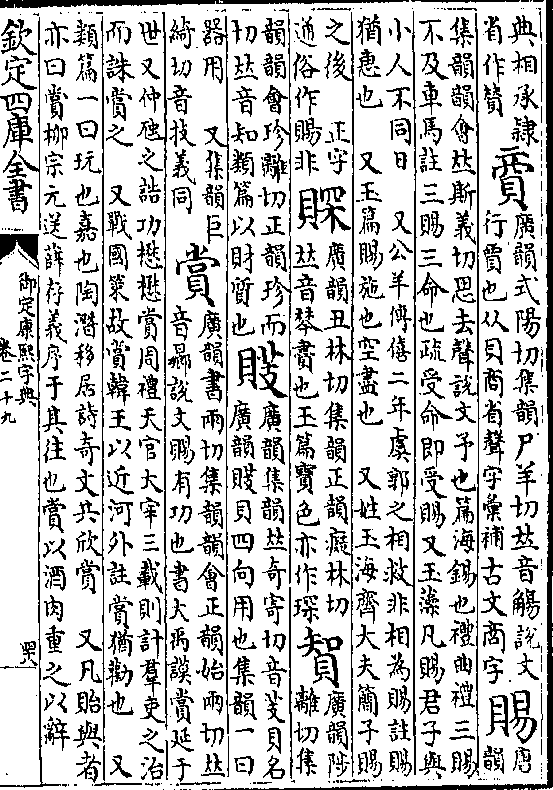 典相承隷
省作贊
𧶜廣韻式陽切集韻尸羊切𠀤音觴説文
行賈也从貝商省聲字彙補古文商字
賜唐
韻
集韻韻會𠀤斯義切思去聲説文予也篇海錫也禮曲禮三賜
不及車馬註三賜三命也疏受命即受賜又玉藻凡賜君子與
小人不同日 又公羊傳僖二年虞郭之相救非相為賜註賜
猶惠也 又玉篇賜施也空盡也 又姓玉海齊大夫簡子賜
之後 正字
通俗作賜非
賝廣韻丑林切集韻正韻癡林切
𠀤音琴賮也玉篇寶色亦作琛
䝷廣韻陟
離切集
韻韻會珍離切正韻珍而
切𠀤音知類篇以財質也
䞚廣韻集韻𠀤奇寄切音芰貝名
廣韻䞚貝四向用也集韻一曰
器用 又集韻巨
綺切音技義同
賞廣韻書兩切集韻韻會正韻始兩切𠀤
音曏説文賜有功也書大禹謨賞延于
世又仲虺之誥功懋懋賞周禮天官大宰三載則計羣吏之治
而誅賞之 又戰國策故賞韓王以近河外註賞猶勸也 又
類篇一曰玩也嘉也陶潛移居詩奇文共欣賞 又凡貽與者
亦曰賞柳宗元送薛存義序于其往也賞以酒肉重之以辭
欽定四庫全書
御定康熙字典
卷二十九